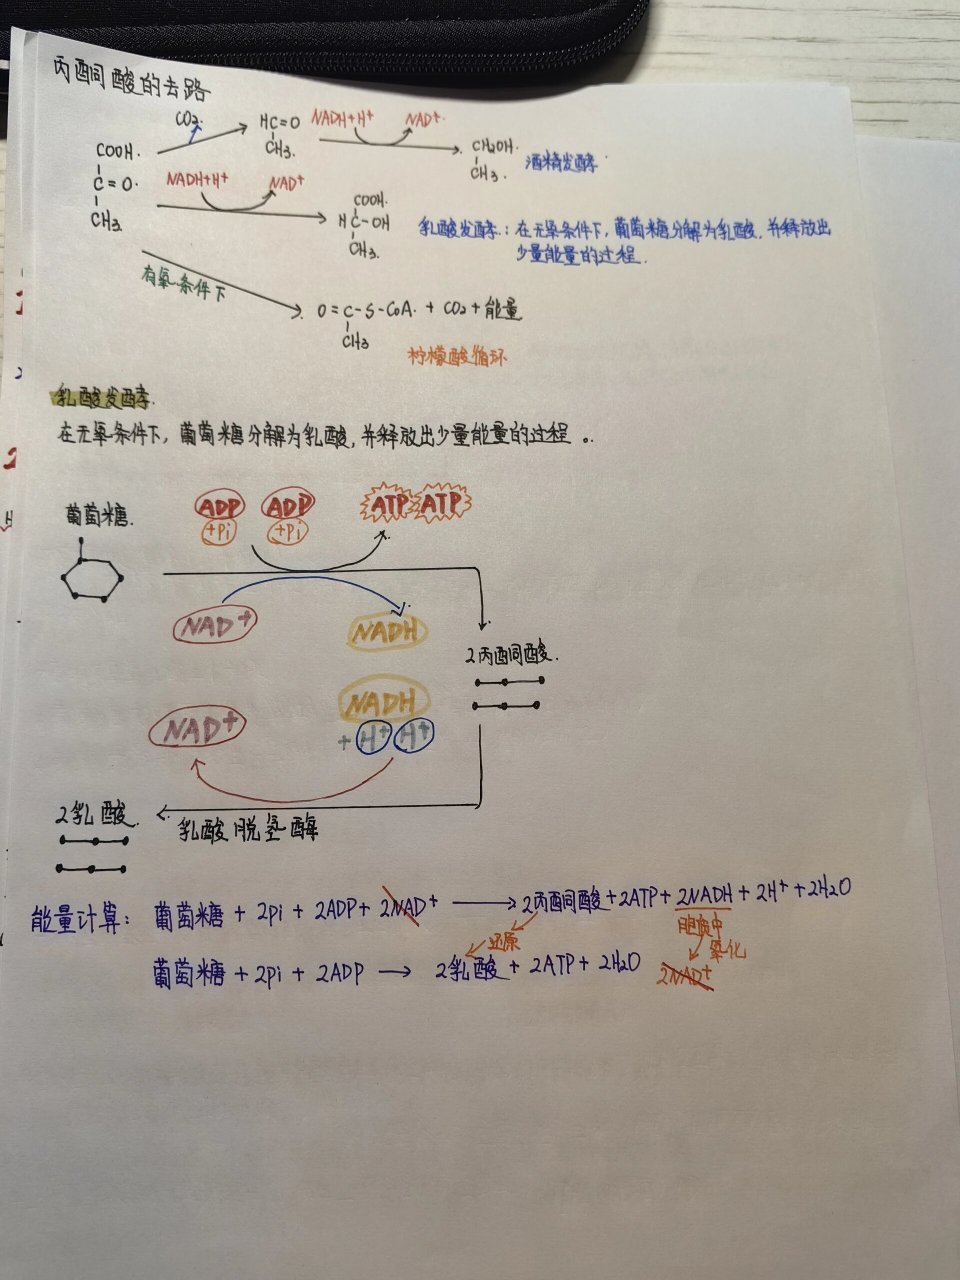 丙酮酸的去路
CO₂
HC=O
CH₃
NADH+H⁺
NAD⁺
CH₂OH
CH₃
酒精发酵
COOH
C=O
CH₃
NADH+H⁺
NAD⁺
COOH
HC-OH
CH₃
乳酸发酵：在无氧条件下，葡萄糖分解为乳酸，并释放出
少量能量的过程.
有氧条件下
O=C-S-CoA + CO₂ + 能量
CH₃
柠檬酸循环
乳酸发酵.
在无氧条件下，葡萄糖分解为乳酸，并释放出少量能量的过程。
葡萄糖.
ADP
+Pi
ADP
+Pi
ATP
ATP
NAD⁺
NADH
2丙酮酸.
NADH
+ H⁺ H⁺
NAD⁺
2乳酸
乳酸脱氢酶
能量计算：葡萄糖 + 2pi + 2ADP + 2NAD⁺ → 2丙酮酸+2ATP+2NADH+2H⁺+2H₂O
还原
氧化
葡萄糖 + 2pi + 2ADP → 2乳酸 + 2ATP + 2H₂O
2NAD⁺